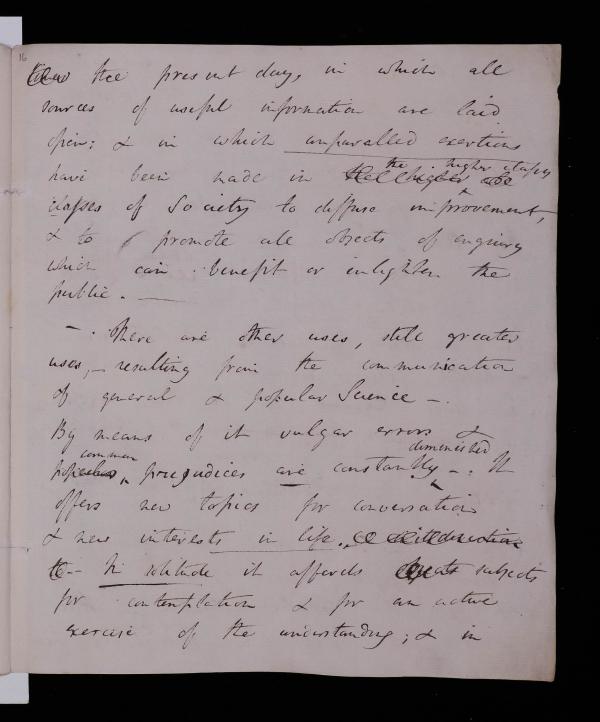 16
the present day, in which all
sources of useful information are laid
open; & in which unparalled exertions
the higher classes
have been made in the higher
classes of Society to diffuse improvement,
& to promote all objects of enquiry
which can benefit or enlighten the
public. —
— . There are other uses, still greater
uses, – resulting from the communication
of general & popular Science –.
By means of it vulgar errors &
common diminished
popular prejudices are constantly – . It
offers new topics for conversation
& new interests in life.
to – In solitude it affords subjects
for contemplation & for an active
exercise of the understanding; & in